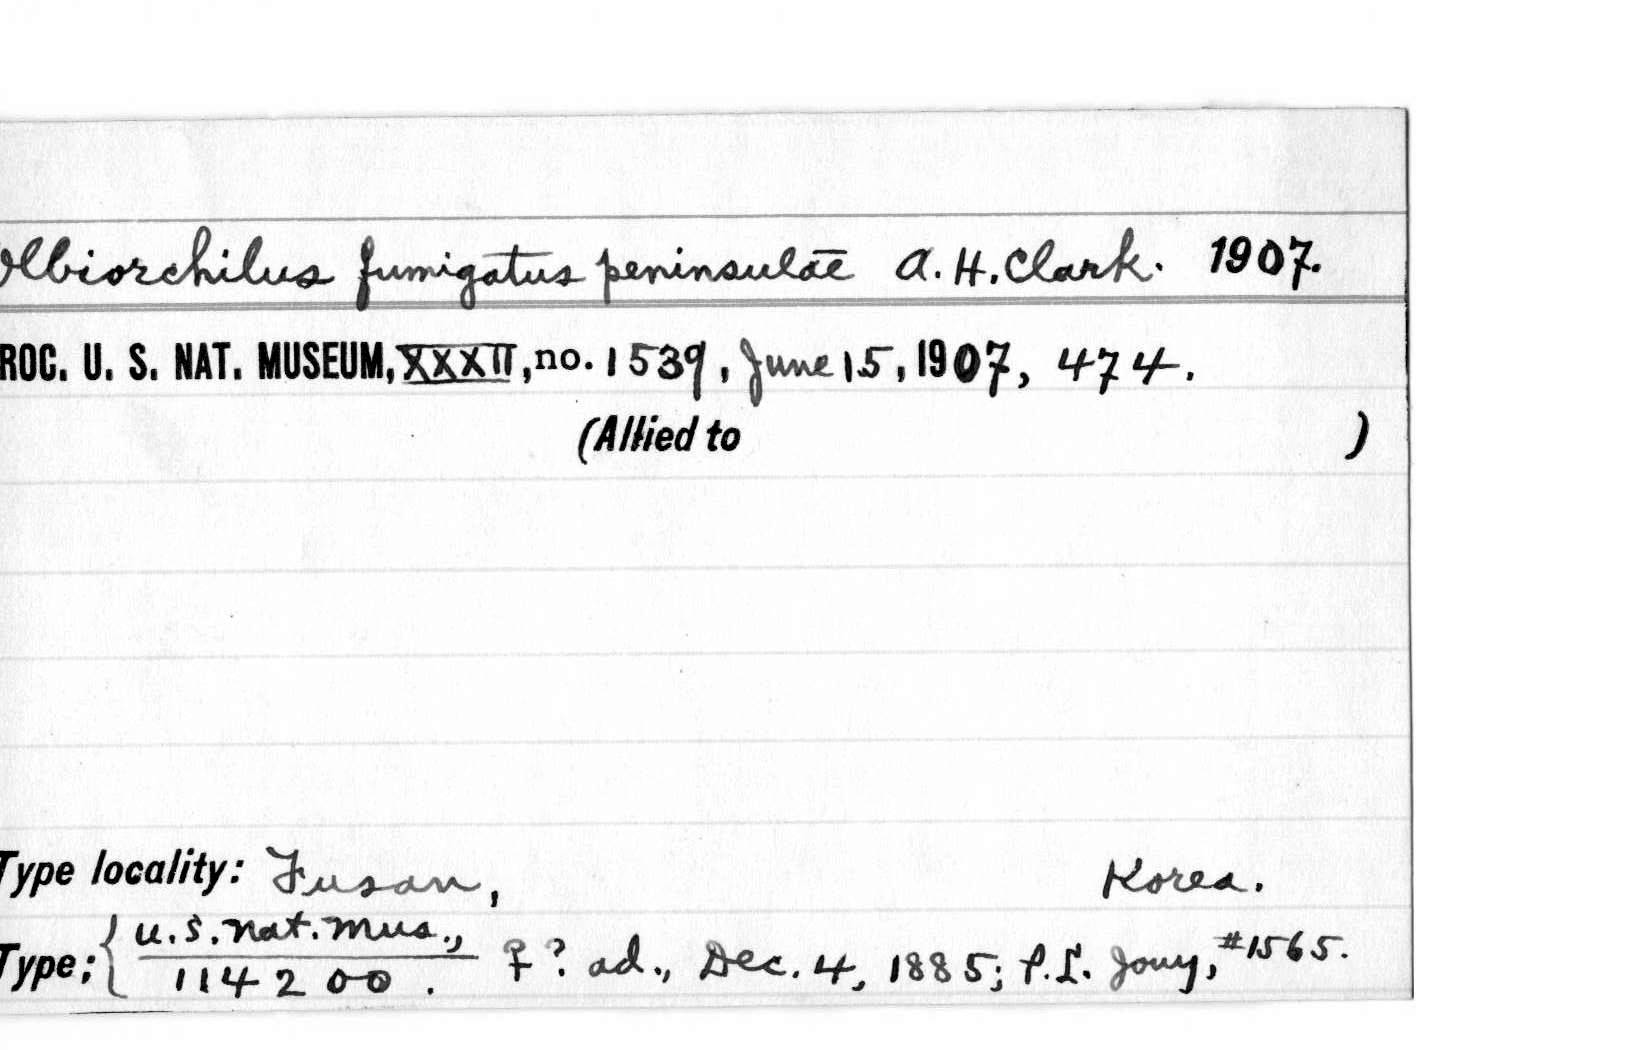 Olbiorchilus fumigatus peninsulae A. H. Clark. 1907.
ROC. U. S. NAT. MUSEUM, XXXII, no. 1539, June 15, 1907, 474.
(Allied to )
Type locality: Fusan, Korea.
Type: { U. S. Nat. Mus., ♀? ad., Dec. 4, 1885; P. L. Jouy, #1565.
114200.